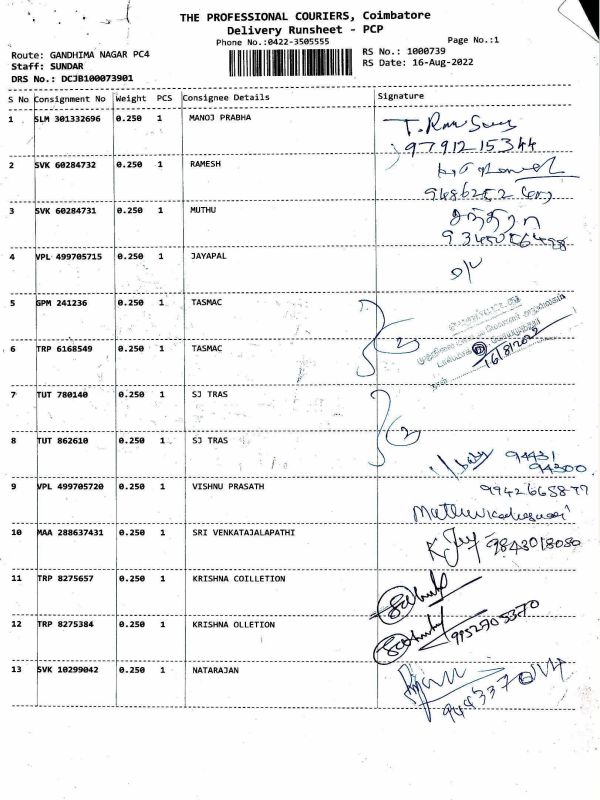 THE PROFESSIONAL COURIERS, Coimbatore
Delivery Runsheet - PCP
Phone No.:0422-3505555
Page No.:1
Route: GANDHIMA NAGAR PC4
RS No.: 1000739
Staff: SUNDAR
RS Date: 16-Aug-2022
DRS No.: DCJB100073901
S No Consignment No Weight PCS Consignee Details Signature
1 SLM 301332696 0.250 1 MANOJ PRABHA
97912 15344
2 SVK 60284732 0.250 1 RAMESH
3 SVK 60284731 0.250 1 MUTHU
4 VPL 499705715 0.250 1 JAYAPAL
5 GPM 241236 0.250 1 TASMAC
2
6 TRP 6168549 0.250 1 TASMAC
16/8/2022
7 TUT 780140 0.250 1 SJ TRAS
2
8 TUT 862610 0.250 1 SJ TRAS
94431
94300
9 VPL 499705720 0.250 1 VISHNU PRASATH
9942665877
10 MAA 288637431 0.250 1 SRI VENKATAJALAPATHI
9843018080
11 TRP 8275657 0.250 1 KRISHNA COILLETION
12 TRP 8275384 0.250 1 KRISHNA OLLETION
9952705370
13 SVK 10299042 0.250 1 NATARAJAN